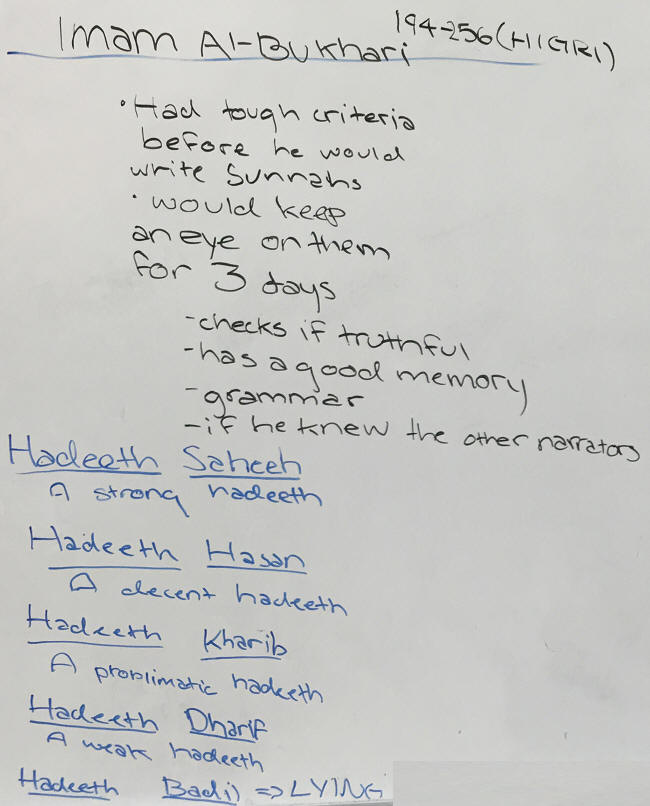 Imam Al-Bukhari 194-256(HIGRI)
• Had tough criteria
before he would
write Sunnahs
• would keep
an eye on them
for 3 days
-checks if truthful
-has a good memory
-grammar
-if he knew the other narrators
Hadeeth Saheeh
A strong hadeeth
Hadeeth Hasan
A decent hadeeth
Hadeeth Kharib
A problimatic hadeeth
Hadeeth Dharif
A weak hadeeth
Hadeeth Badil => LYING